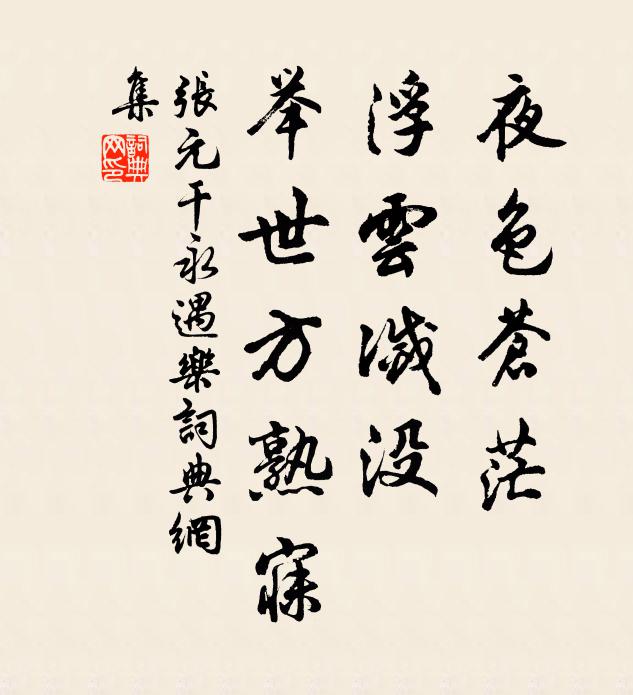 夜色蒼茫
浮雲滅没
举世方熟寐
張元干永遇樂詞典網
集
詞典
网印